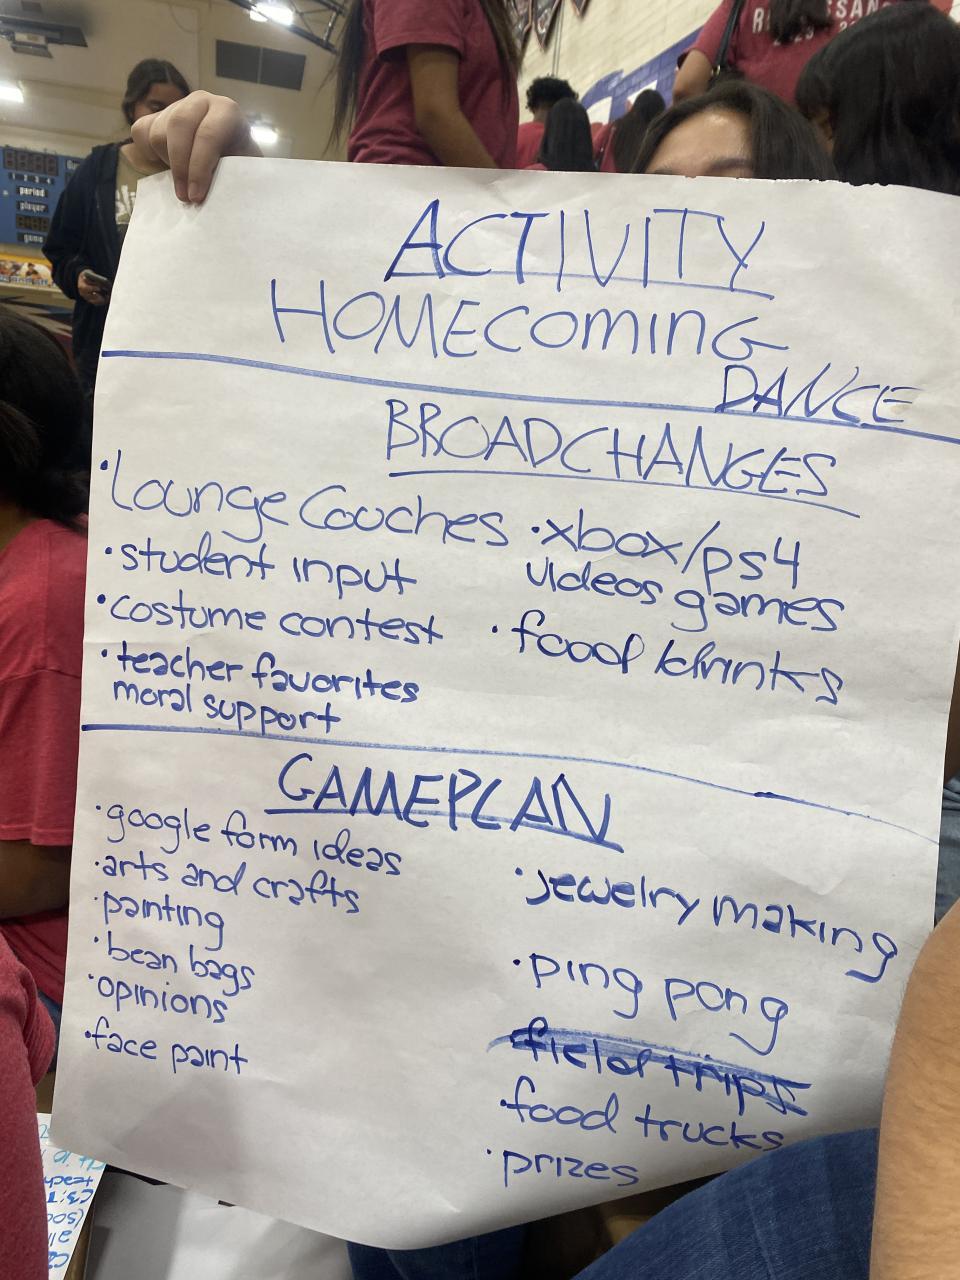 ACTIVITY
HOMECOMING
DANCE
BROADCHANGES
• Lounge Couches
• student input
• costume contest
• teacher favorites
moral support
• xbox/ps4
videos games
• food /drinks
GAMEPLAN
• google form ideas
• arts and crafts
• painting
• bean bags
• opinions
• face paint
• jewelry making
• ping pong
field trips
• food trucks
• prizes
period
player
game